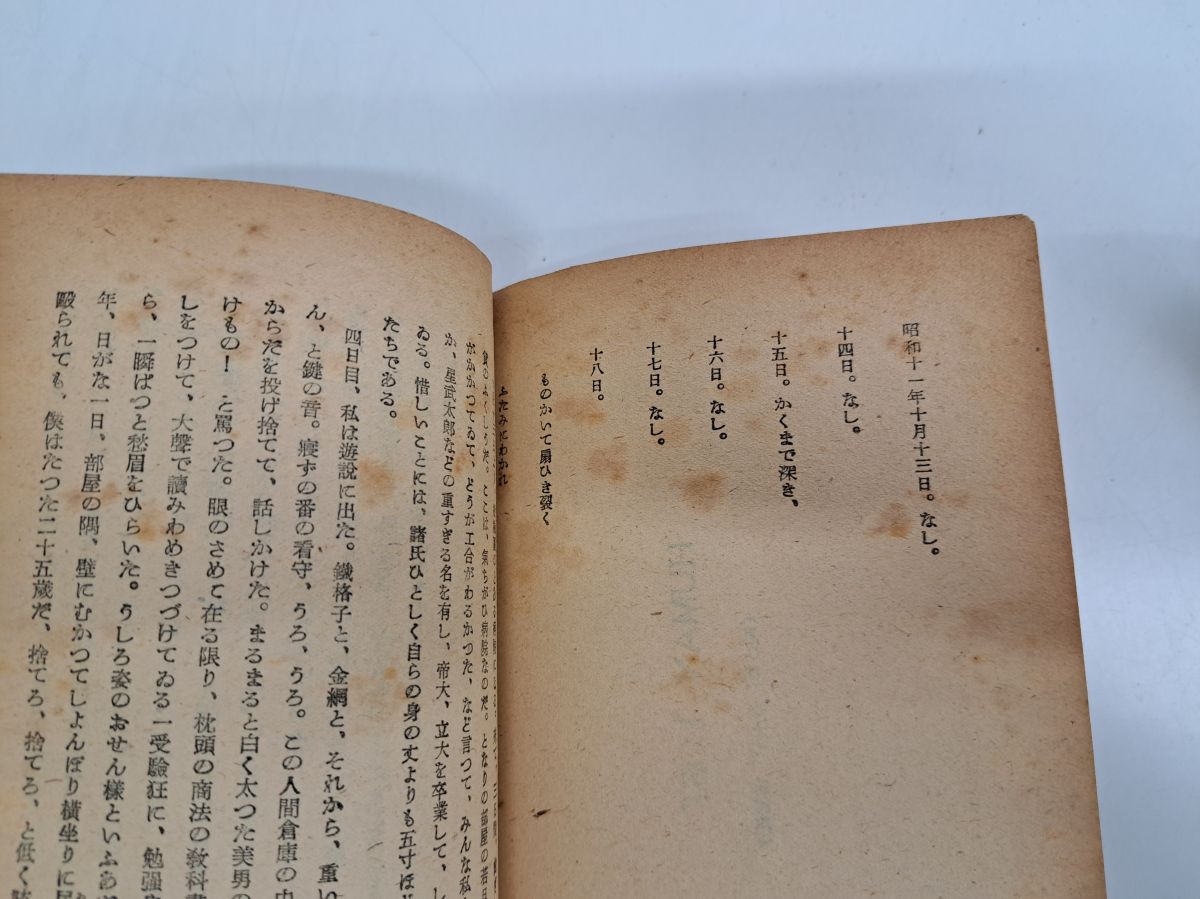 昭和十一年十月十三日。なし。
十四日。なし。
十五日。かくまで深き、
十六日。なし。
十七日。なし。
十八日。
ものかいて扇ひき裂く
ふたみにわかれ
食のふくしうだ。ここは、氣ちがひ病院なのだ。となりの部屋の若
がかかつてゐて、どうか工合がわるかつた、など言つて、みんな私
か、星武太郎などの重すぎる名を有し、帝大、立大を卒業して、し
ゐる。惜しいことには、諸氏ひとしく自らの身の丈よりも五寸ほど
たちである。
四日目、私は遊説に出た。鐵格子と、金網と、それから、重い
ん、と鍵の音。寢ずの番の看守、うろ、うろ。この人間倉庫の中
からだを投げ捨てて、話しかけた。まるまると白く太つた美男の
けもの！と罵つた。眼のさめて在る限り、枕頭の商法の教科書
しをつけて、大聲で讀みわめきつづけてゐる一受驗狂に、勉強
ら、一瞬ぱつと愁眉をひらいた。うしろ姿のおせん樣といふあ
年、日がな一日、部屋の隅、壁にむかつてしよんぼり横坐りに
毆られても、僕はたつた二十五歳だ、捨てろ、捨てろ、と低く